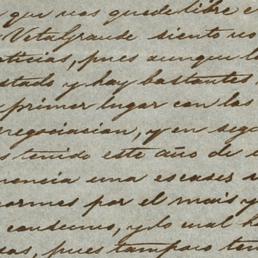 que nos quede libre e
Vetagrande siento no
oticias, pues aunque l
stado y hay bastantes
primer lugar con las
negociacion, y en segu
s tenido este año de
nencia una escases
ormes por el mais y
consumo, y lo cual ha
as, pues tampoco ten